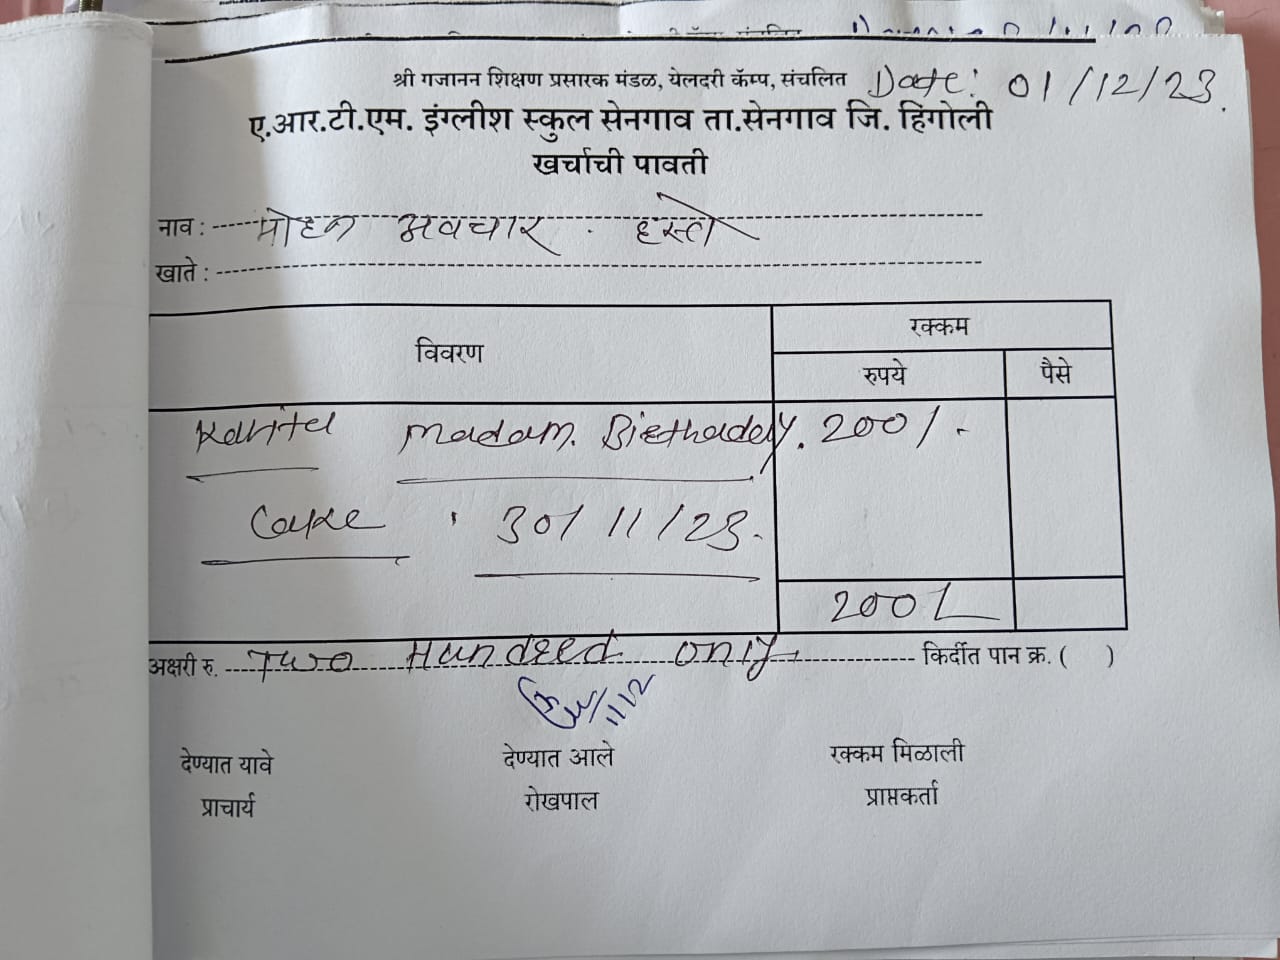 श्री गजानन शिक्षण प्रसारक मंडळ, येलदरी कॅम्प, संचलित Date: 01/12/23.
ए.आर.टी.एम. इंग्लीश स्कुल सेनगाव ता.सेनगाव जि. हिंगोली
खर्चाची पावती
नाव : मोहन अवचार . हस्ते
खाते :
विवरण रक्कम
रुपये पैसे
Kavita Madam. Birthaday. 200/-
Cake . 30/11/23.
200/-
अक्षरी रु. Two Hundred only किर्दीत पान क्र. ( )
देण्यात यावे देण्यात आले रक्कम मिळाली
प्राचार्य रोखपाल प्राप्तकर्ता